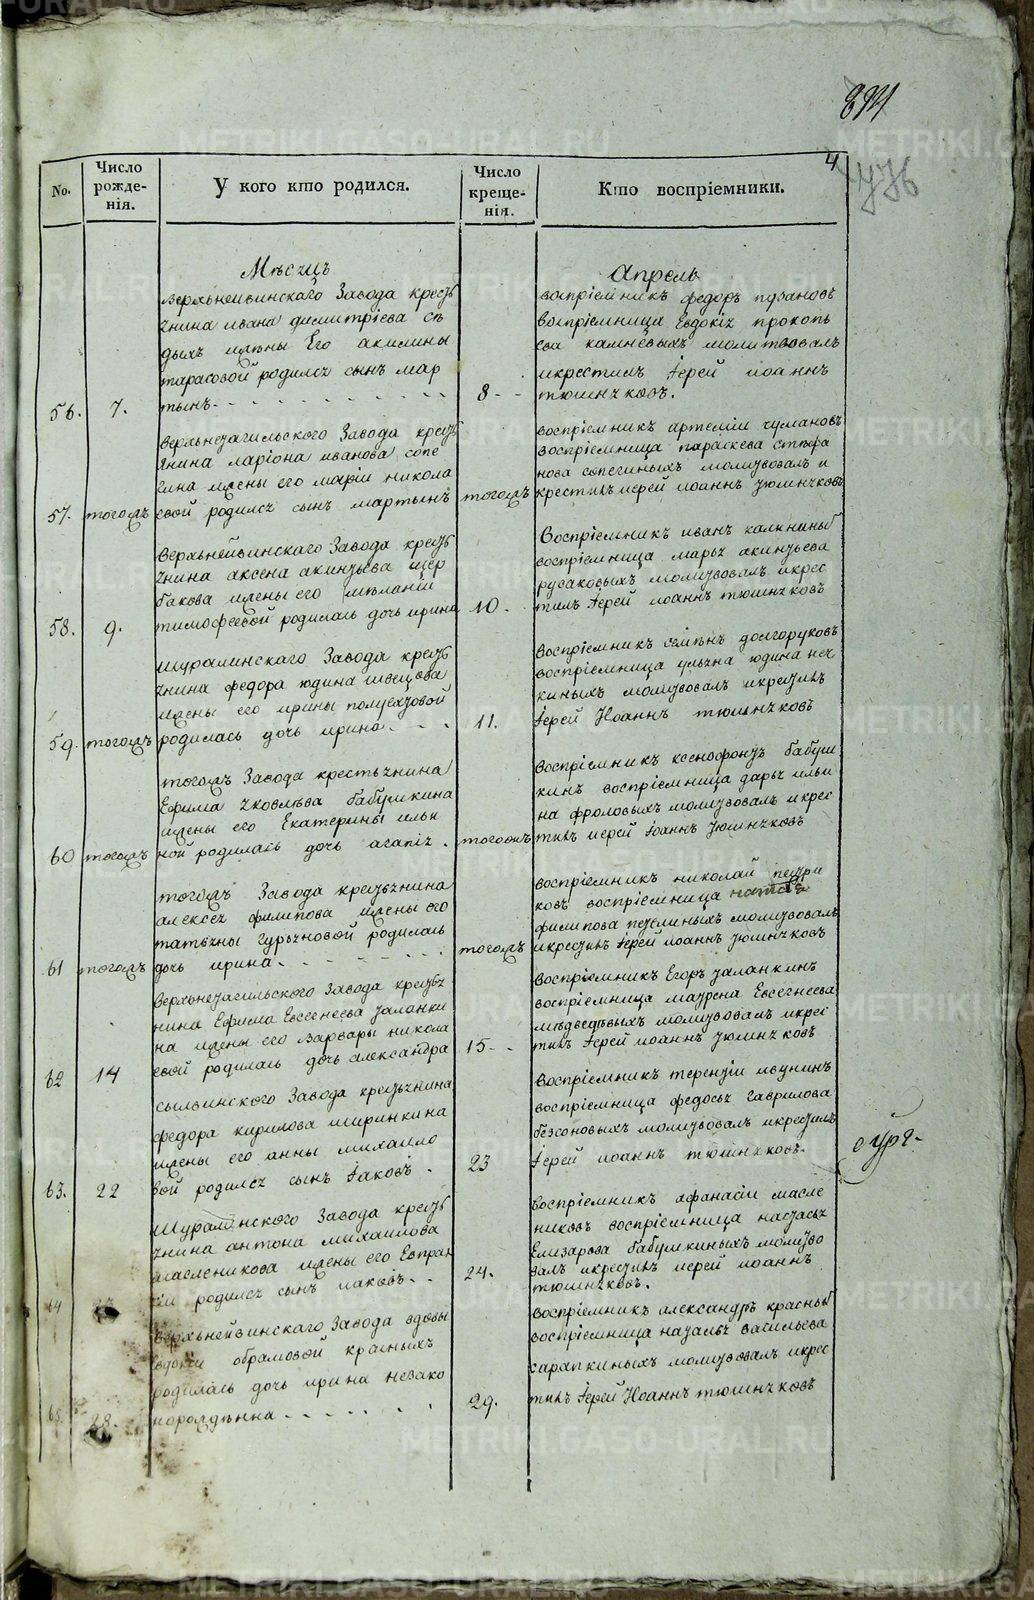 894
4
No.
Число рожденія.
У кого кто родился.
Число крещенія.
Кто воспріемники.
Мѣсяцъ
Апрель
верхьнейвинскаго Завода кресть
янина ивана димитріева сѣ
дыхъ жены Его акилины
тарасовой родился сынъ мар
56. 7. тынъ
воспріемникъ федоръ пузановъ
воспріемница Евдокія прокопь
ева каннёвыхъ молитвовалъ
икрестилъ Іерей иоаннъ
8 тюшняковъ.
верхьнетагильского Завода кресть
янина ларіона иванова сопе
гина жены его маріи никола
57. тогожъ евой родился сынъ мартынъ
воспріемникъ артемии чумановъ
воспріемница параскева стефа
нова сопегиныхъ молитвовалъ и
тогожъ крестилъ иерей иоаннъ тюшняковъ
верхьнейвинскаго Завода кресть
янина аксена акинтьева щер
бакова жены его мѣланіи
58. 9. тимофеевой родилась дочь ирина
Воспріемникъ иванъ калининый
воспріемница марья акинтьева
русаковыхъ молитвовалъ икрес
10. тилъ Іерей иоаннъ тюшняковъ
шуралинскаго Завода кресть
янина федора юдина швецова
жены его ирины полуехтовой
59. тогожъ родилась дочь ирина
воспріемникъ семѣнъ долгоруковъ
воспріемница ульяна юдина
киныхъ молитвовалъ икрестилъ
11. Іерей Иоаннъ тюшняковъ
тогожъ Завода крестьянина
Ефима яковлѣва бабушкина
жены его Екатерины ильи
60 тогожъ ной родилась дочь агапія
воспріемникъ ксенофонтъ бабуш
кинъ воспріемница дарья ильи
на фроловыхъ молитвовалъ икрес
тогожъ тилъ иерей Іоаннъ тюшняковъ
тогожъ Завода крестьянина
алексея филипова жены его
татьяны гурьяновой родилась
61 тогожъ дочь ирина
воспріемникъ николай петри
ковъ воспріемница
филипова петелиныхъ молитвовалъ
тогожъ икрестилъ Іерей иоаннъ тюшняковъ
верхьнетагильского Завода кресть
янина Ефима Евсегнеева таланки
на жены его варвары никола
62 14 евой родилась дочь александра
воспріемникъ Егоръ таланкинъ
воспріемница маурена Евсегнеева
мѣдведѣвыхъ молитвовалъ икрес
15 тилъ Іерей иоаннъ тюшняковъ
сылвинского Завода крестьянина
федора кирилова ширинкина
жены его анны михаило
63. 22 вой родился сынъ Іаковъ
воспріемникъ терентіи леунинъ
воспріемница федосья гаврилова
безсоновыхъ молитвовалъ икрестилъ
23 Іерей иоаннъ тюшняковъ
шуралинского Завода кресть
янина антона михаилова
масленикова жены его Евпрак
64 сіи родился сынъ иаковъ
воспріемникъ афанасіи масле
никовъ воспріемница настасья
Елизарова бабушкиныхъ молитво
24. валъ икрестилъ иерей иоаннъ
тюшняковъ.
верхьнейвинскаго Завода вдовы
обрамовой красныхъ
родилась дочь ирина незако
65. 28. норождѣнна
воспріемникъ александръ красный
воспріемница наталья васильева
сарапкиныхъ молитвовалъ икрес
29. тилъ Іерей Иоаннъ тюшняковъ
METRIKI.GASO-URAL.RU